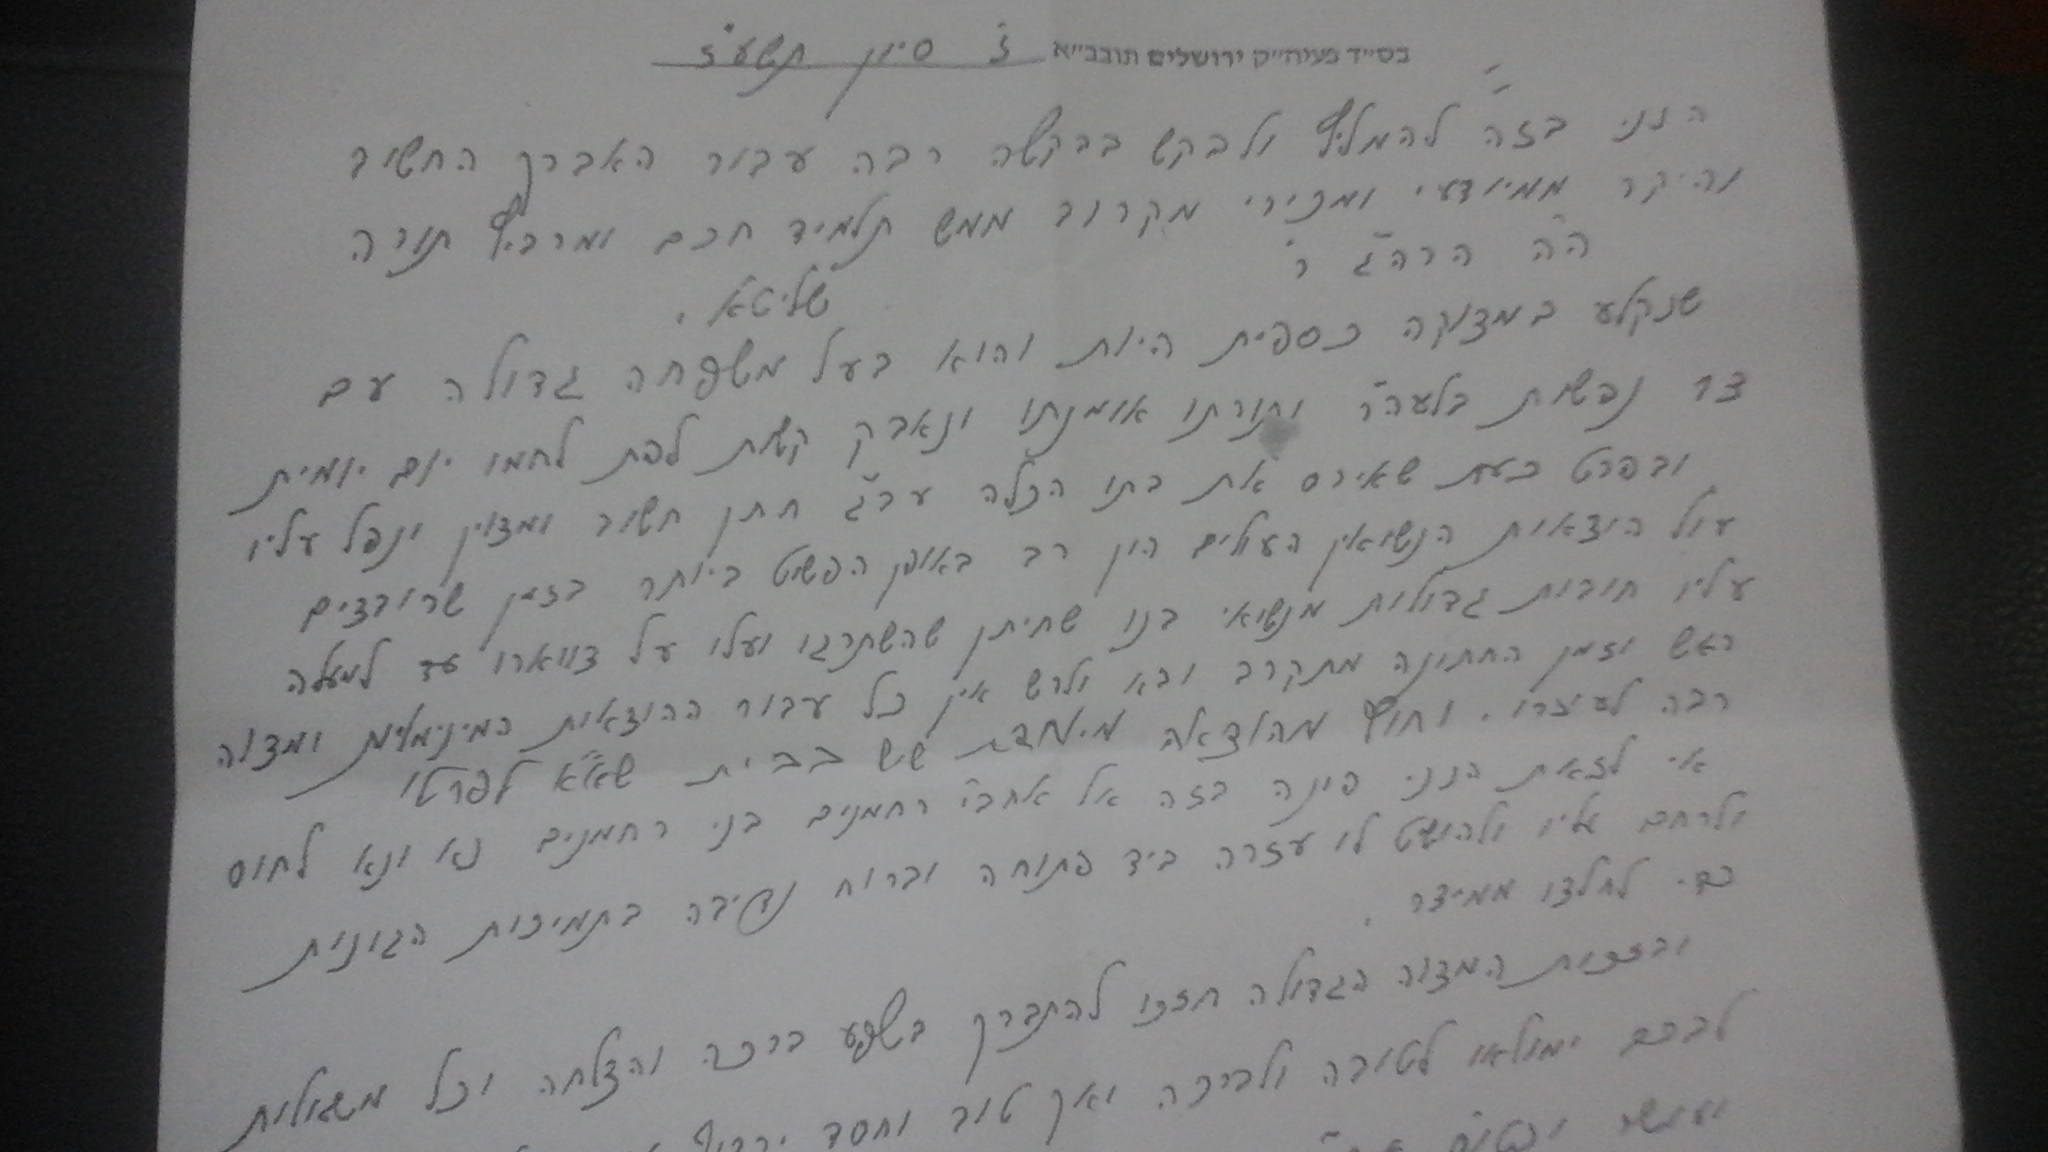 בס״ד פעיה״ק ירושלים תובב״א ז' סיון תשע"ז
הנני בזה להמליץ ולבקש בבקשה רבה עבור האברך החשוב
והיקר ממיודעי ומכירי מקרוב ממש תלמיד חכם ומרביץ תורה
ה"ה הרה"ג ר'
שליט"א.
שנקלע במצוקה כספית היות והוא בעל משפחה גדולה עם
נפשות בלעה"ר ותורתו אומנתו ונאבק קשות לפת לחמו יום יומית
ובפרט כעת שאירס את בתו הכלה עב"ג חתן חשוב ומצוין ונפל עליו
עול הוצאות הנשואין העולים הון רב באופן הפשוט ביותר בזמן שרובצים
עליו חובות גדולות מנשואי בנו שחיתן שהשתרגו ועלו על צווארו עד למעלה
ראש וזמן החתונה מתקרב ובא ולרש אין כל עבור ההוצאות המינימליות ומצוה
רבה לעזרו. וחוץ מהוצאה מיוחדת שיש בבית שא"א לפרטו
אי לזאת הנני פונה בזה אל אחב"י רחמנים בני רחמנים נא ונא לחוס
ולרחם עליו ולהושיט לו עזרה ביד פתוחה וברוח נדיבה בתמיכות הגונית
כדי לחלצו ממיצר.
ובזכות המצוה הגדולה תזכו להתברך בשפע ברכה והצלחה וכל משאלות
לבכם ימולאו לטובה ולברכה ואך טוב וחסד
ועושר